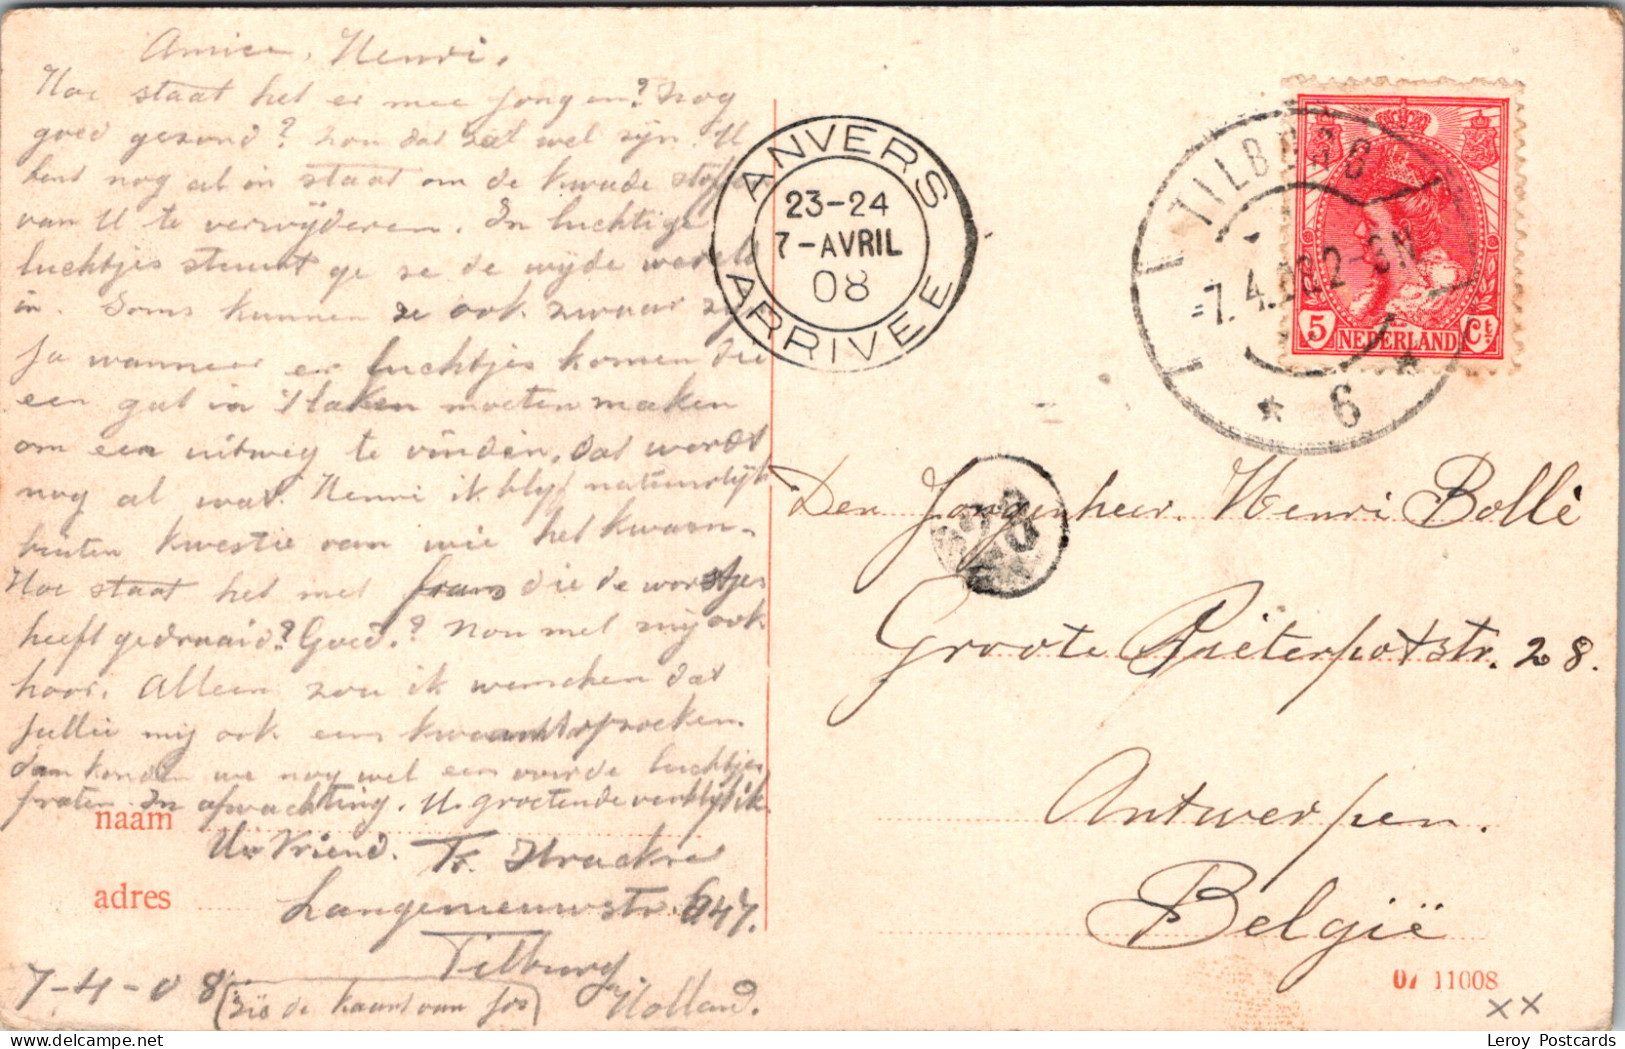 Amice, Henri.
Hoe staat het er mee jongen? Nog
goed gezond? Zou dat zal wel zijn. U
bent nog al in staat om de kwade stoffen
van U te verwijderen. In luchtige
luchtjes stuurt ge ze de wijde wereld
in. Soms kunnen ze ook zwaar zijn
Ja wanneer er luchtjes komen die
een gat in 't laken moeten maken
om een uitweg te vinden, dat wordt
nog al wat. Henri ik blijf natuurlijk
buiten kwestie van wie het kwam.
Hoe staat het met frans die de worstjes
heeft gedraaid? Goed? Nou met mij ook
hoor. Alleen zou ik wenschen dat
jullie mij ook eens
dan konden we nog wel een luchtjes
praten. In afwachting. U groetende verblijf ik
naam
Uw Vriend. Tr.
adres
Langenieuwstr. 647.
Tilburg.
Holland.
7-4-08
(zie de kaart van Jos)
ANVERS
23-24
7-AVRIL
08
ARRIVEE
TILBURG
-7.4.08 2-3N
* 6 *
5 NEDERLAND Ct
Den Jongenheer. Henri Bollè
Groote Pieterpotstr. 28.
Antwerpen.
België
07 11008
xx
Leroy Postcards